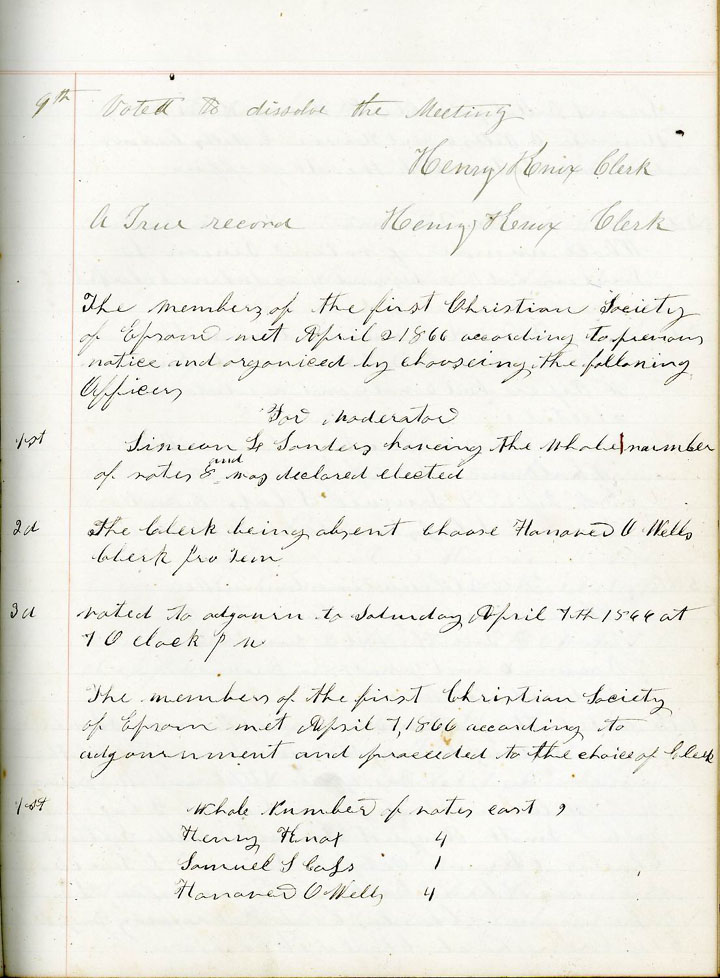 9th Voted to dissolve the Meeting
Henry Knox Clerk
A True record Henry Knox Clerk
The members of the first Christian Society
of Epsom met April 2 1866 according to previous
notice and organiced by chooseing the following
Officers
For Moderator
1st Simeon Sanders haveing the whole number
of votes & and was declared elected
2d The Clerk being absent choose Hanover O Wells
Clerk Pro Tem
3d voted to adgourn to Saturday April 7th 1866 at
7 O clock P M
The members of the first Christian Society
of Epsom met April 7, 1866 according to
adgournment and proceeded to the choice of Clerk
1st Whole Number of votes cast 9
Henry Knox 4
Samuel S Cass 1
Hanover O Wells 4